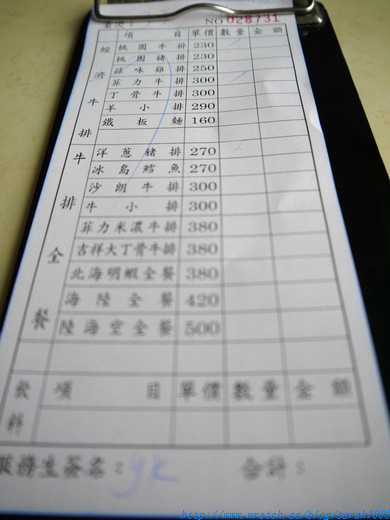 NO 028731
項 目 單價 數量 金額
經濟牛排
桃園牛排 230
桃園豬排 230
蒜味雞排 250
菲力牛排 300
丁骨牛排 300
羊小排 290
鐵板麵 160
牛排全餐
洋蔥豬排 270
冰島鱈魚 270
沙朗牛排 300
牛小排 300
菲力米濃牛排 380
吉祥大丁骨牛排 380
北海明蝦全餐 380
海陸全餐 420
陸海空全餐 500
飲料 項 目 單價 數量 金額
服務生簽名： 合計：